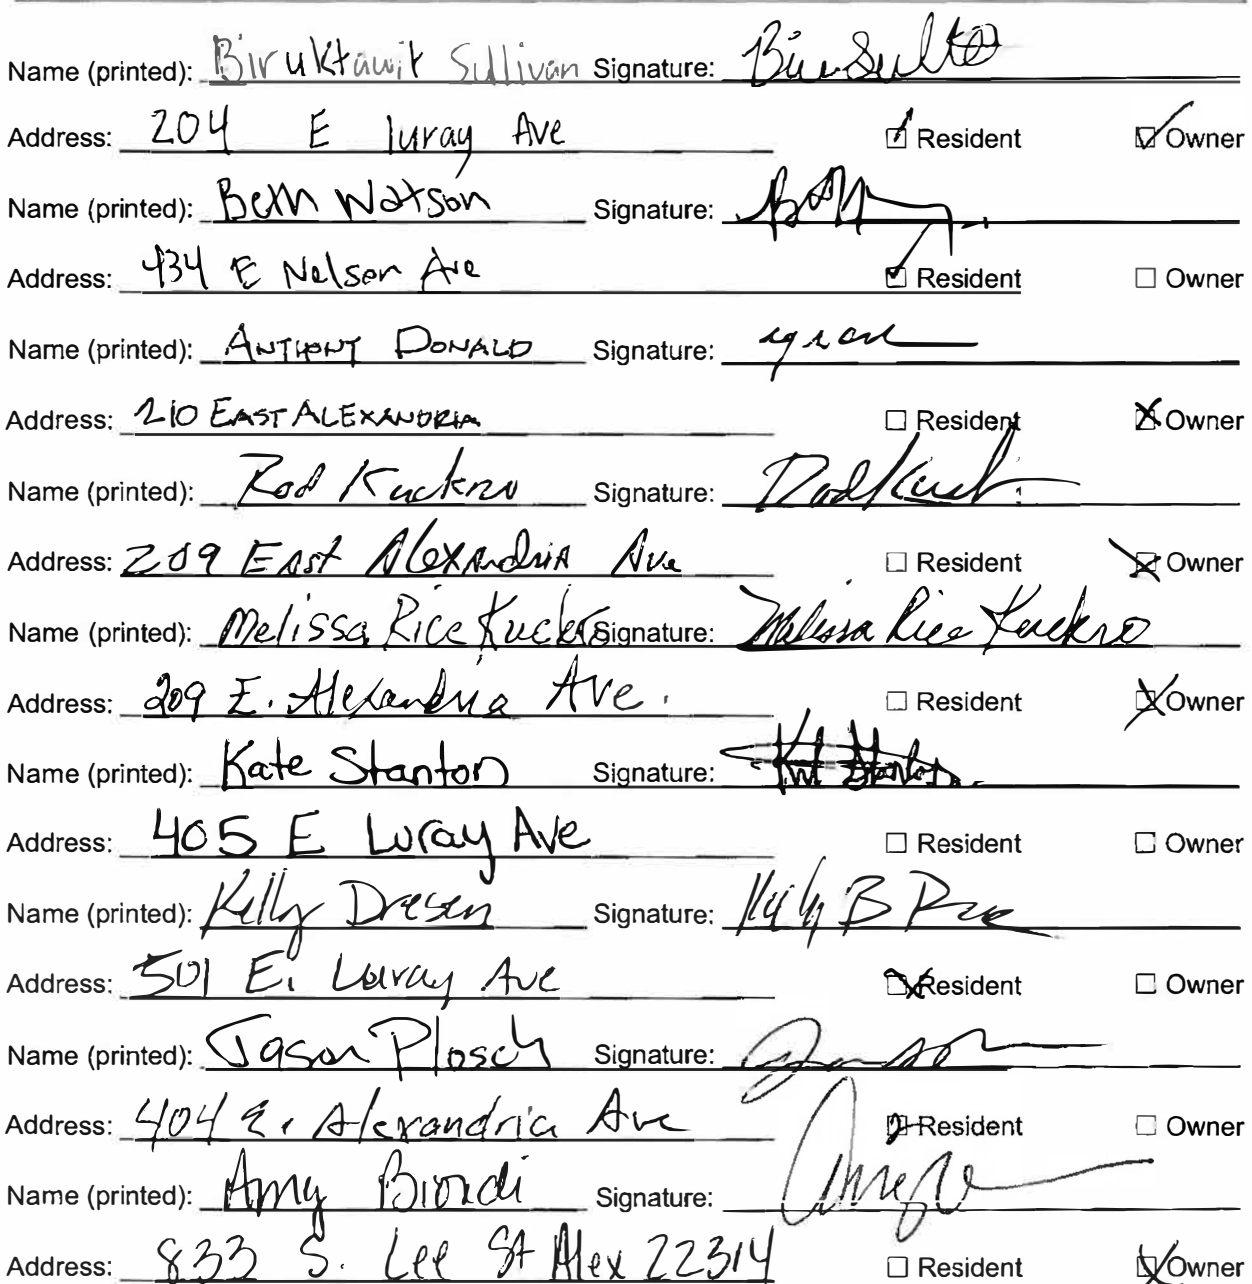 Name (printed): Biruktawit Sullivan Signature:
Address: 204 E luray Ave ☑ Resident ☑ Owner
Name (printed): Beth Watson Signature:
Address: 434 E Nelson Ave ☑ Resident ☐ Owner
Name (printed): ANTHONY DONALD Signature:
Address: 210 EAST ALEXANDRIA ☐ Resident ☒ Owner
Name (printed): Rod Kuckro Signature: Rod Kuck
Address: 209 East Alexandria Ave ☐ Resident ☒ Owner
Name (printed): Melissa Rice Kuckro Signature: Melissa Rice Kuckro
Address: 209 E. Alexandria Ave. ☐ Resident ☒ Owner
Name (printed): Kate Stanton Signature:
Address: 405 E Luray Ave ☐ Resident ☐ Owner
Name (printed): Kelly Dresen Signature:
Address: 501 E. Luray Ave ☒ Resident ☐ Owner
Name (printed): Jason Plosch Signature:
Address: 404 E. Alexandria Ave ☑ Resident ☐ Owner
Name (printed): Amy Biondi Signature:
Address: 833 S. Lee St Alex 22314 ☐ Resident ☒ Owner